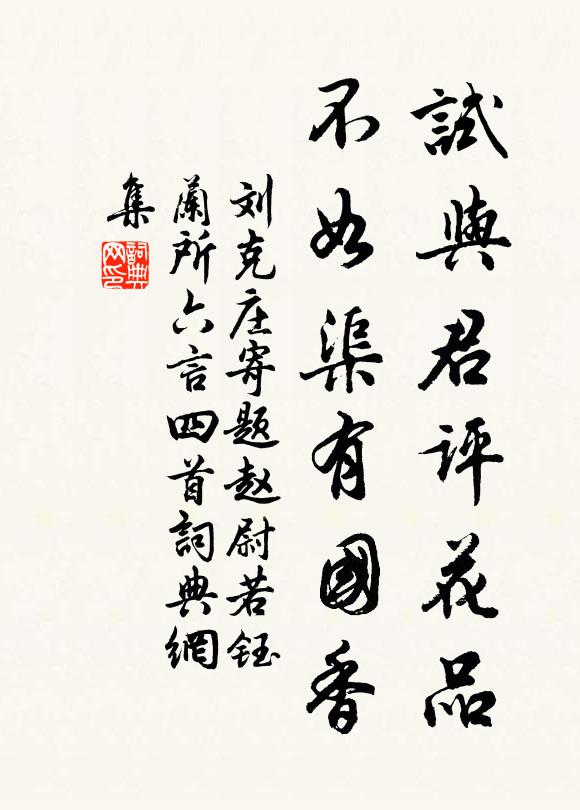 試與君评花品
不如渠有國香
刘克庄寄题赵尉若钰
蘭所六言四首詞典網
集
詞典
网印